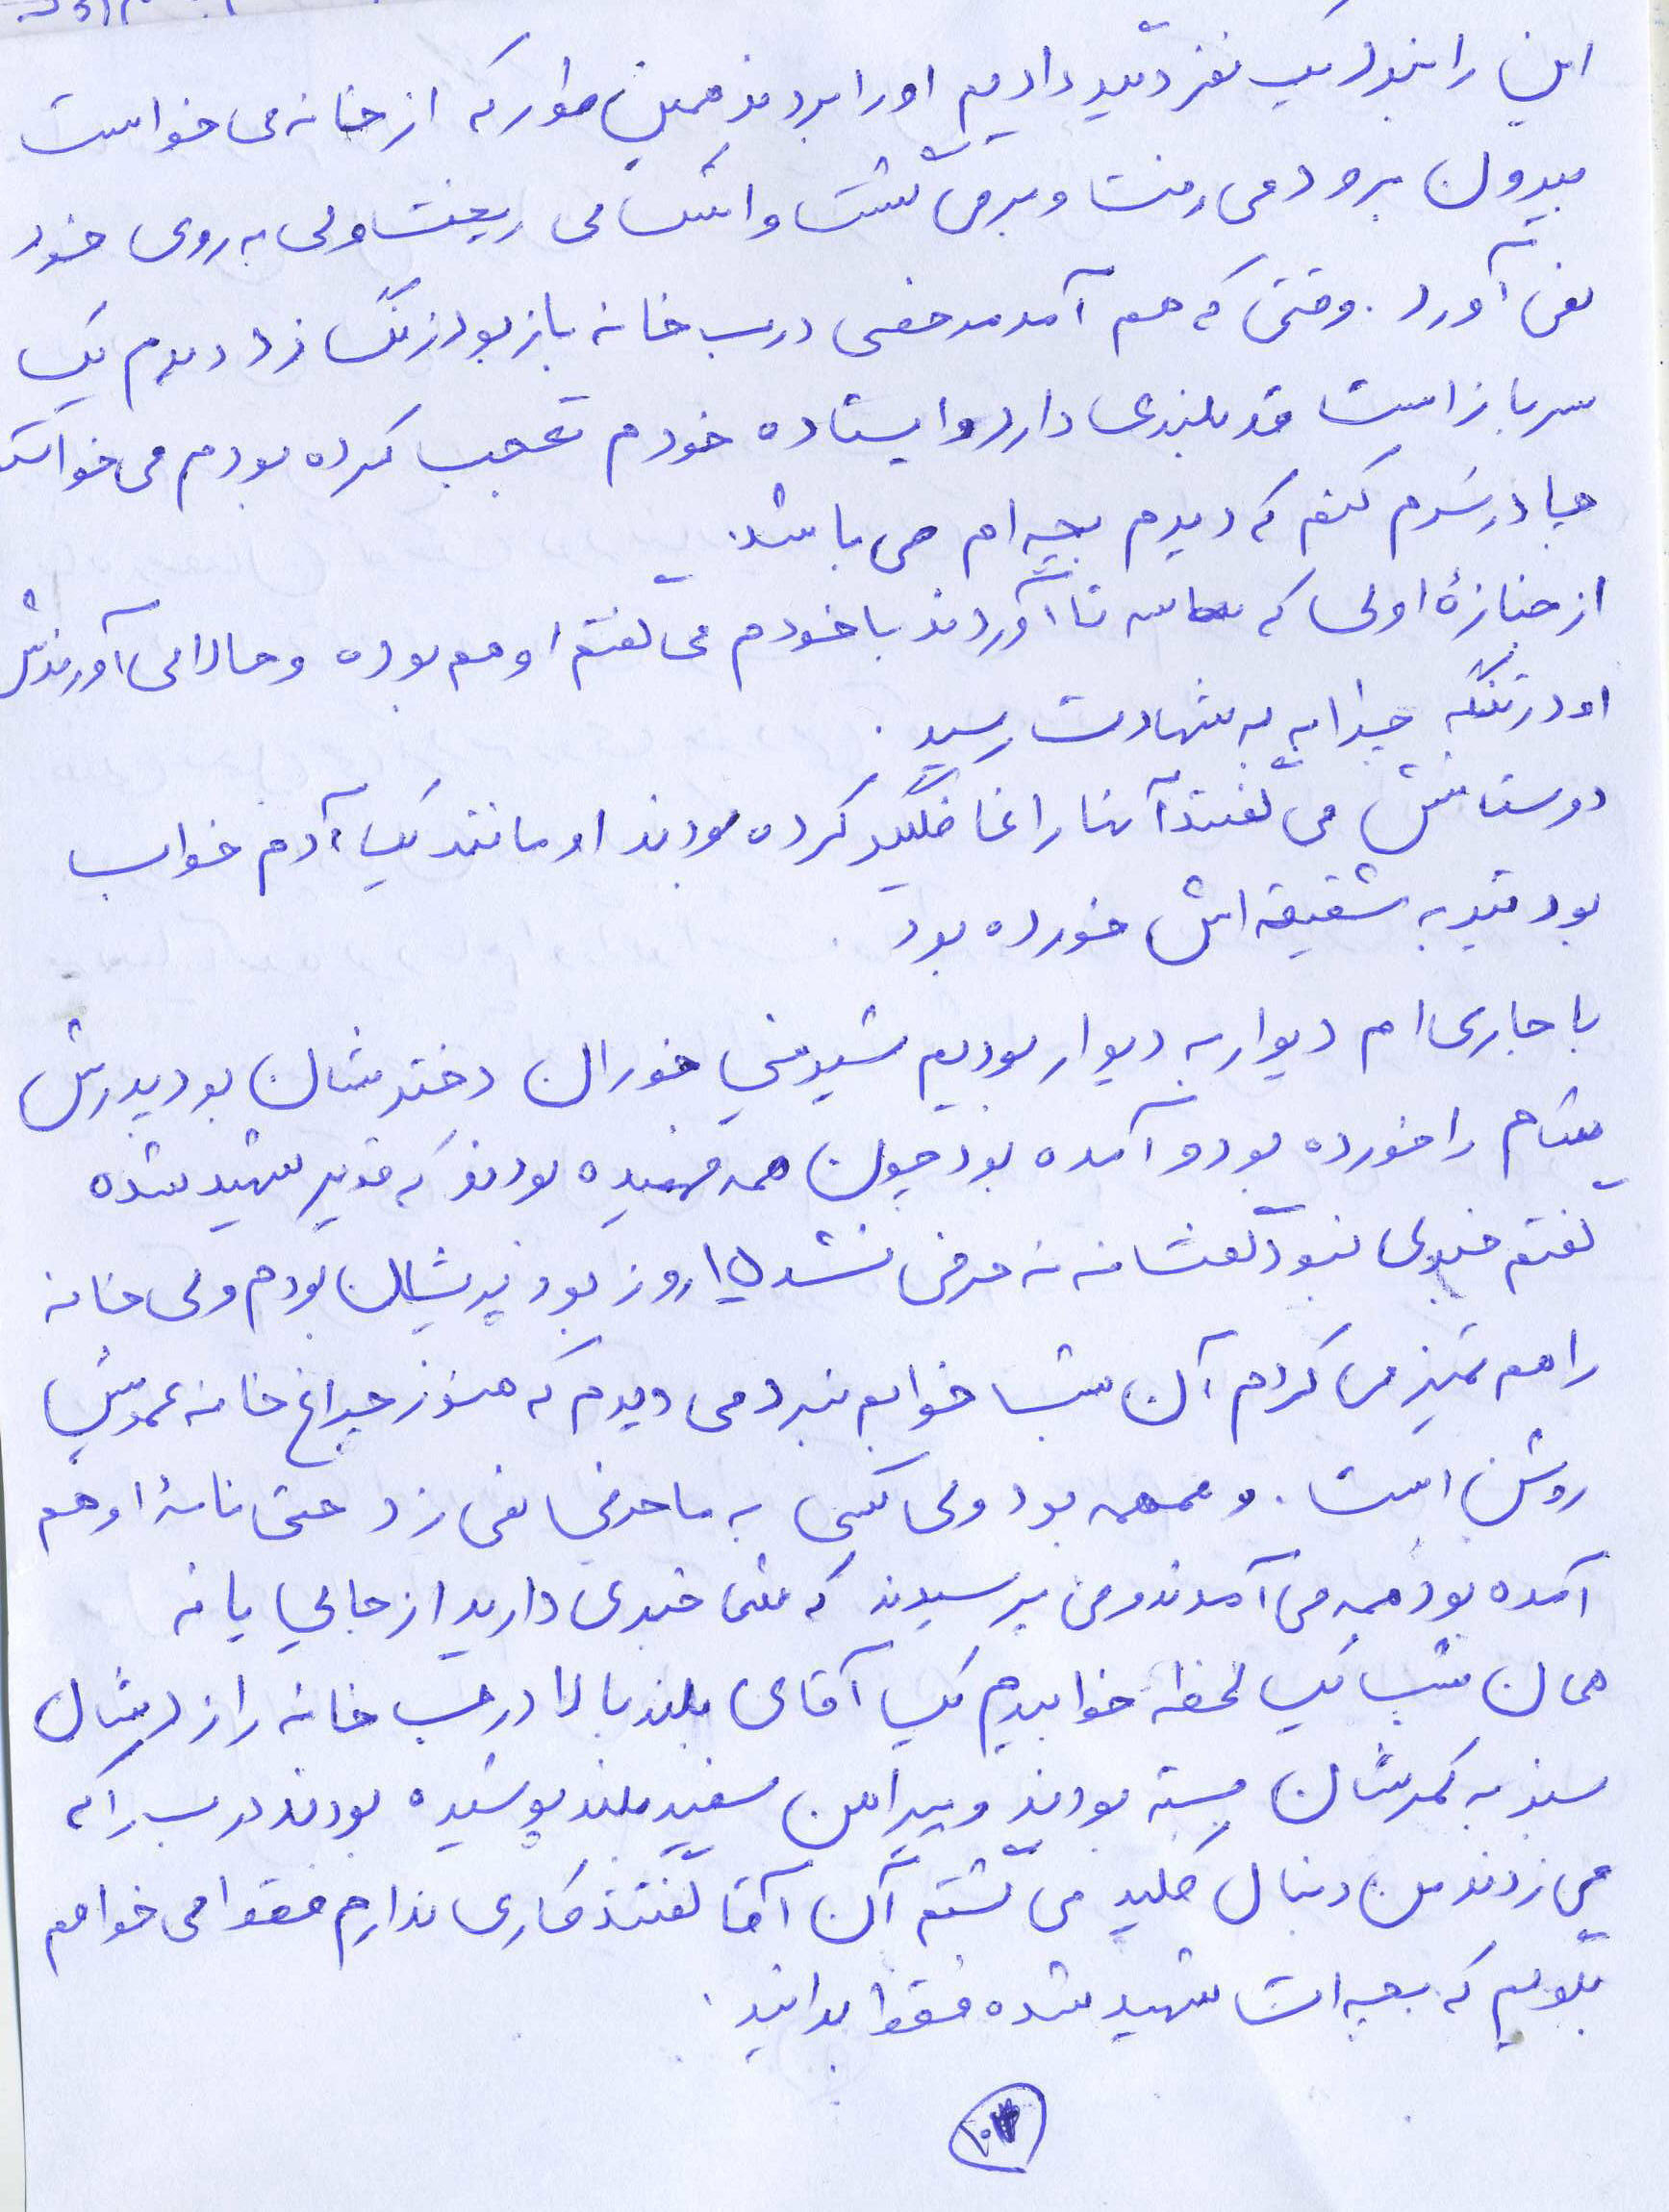 این را نیز یک نفر دیگر دادیم او را بردند همین طور که از خانه می خواست
بیرون برود می رفت و برمی گشت و اشک می ریخت ولی به روی خود
نمی آورد. وقتی که هم آمد مرخصی درب خانه باز بود زنگ زد دیدم یک
سرباز است قد بلندی دارد وایستاده خودم تعجب کرده بودم می خواستم
چادر سرم کنم که دیدم بچه ام می باشد.
از جنازهٔ اولی که سه تا آوردند با خودم می گفتم او هم بوده و حالا می آورندش
او در تنگه چزابه به شهادت رسید.
دوستانش می گفتند آنها را غافلگیر کرده بودند او مانند یک آدم خواب
بود تیر به شقیقه اش خورده بود
با جاری ام دیوار به دیوار بودیم شیرینی خوران دخترشان بود پدرش
شام را خورده بود و آمده بود چون همه فهمیده بودند که قدیر شهید شده
گفتم خبری نبود گفت نه نه حرفی نشد ۱۵ روز بود پریشان بودم ولی خانه
را هم تمیز می کردم آن شب خوابم نبرد می دیدم که هنوز چراغ خانه عمویش
روشن است. و همهمه بود ولی کسی به ما حرفی نمی زد حتی نامهٔ او هم
آمده بود همه می آمدند و می پرسیدند که شما خبری دارید از جایی یا نه
همان شب یک لحظه خوابیدم یک آقای بلند بالا درب خانه را زد شال
سبز به کمرشان بسته بودند و پیراهن سفید بلند پوشیده بودند درب را که
می زدند من دنبال کلید می گشتم آن آقا گفتند کاری ندارم فقط می خواهم
بگویم که بچه ات شهید شده فقط بدانید.